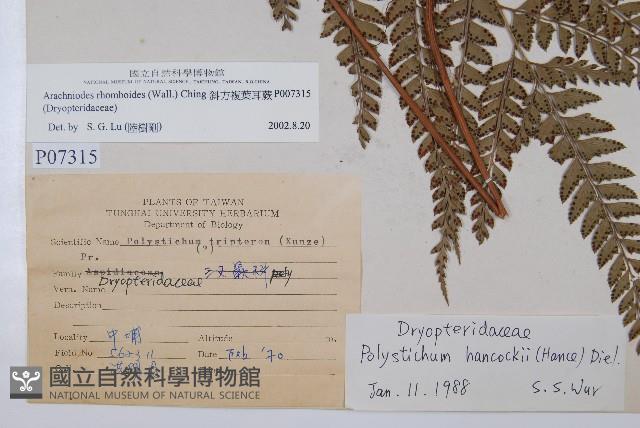 國立自然科學博物館
NATIONAL MUSEUM OF NATURAL SCIENCE, TAICHUNG, TAIWAN, R.O.CHINA
Arachniodes rhomboides (Wall.) Ching 斜方複葉耳蕨 P007315
(Dryopteridaceae)
Det. by S. G. Lu (陸樹剛) 2002.8.20
P07315
PLANTS OF TAIWAN
TUNGHAI UNIVERSITY HERBARIUM
Department of Biology
Scientific Name Polystichum tripteron (Kunze)
Pr. (?)
Family Aspidiaceae
Vern. Name Dryopteridaceae
Description
Locality 中埔 Altitude m.
Field No. Date Feb '70
國立自然科學博物館
NATIONAL MUSEUM OF NATURAL SCIENCE
Dryopteridaceae
Polystichum hancockii (Hance) Diel.
Jan. 11. 1988 S. S. Wur